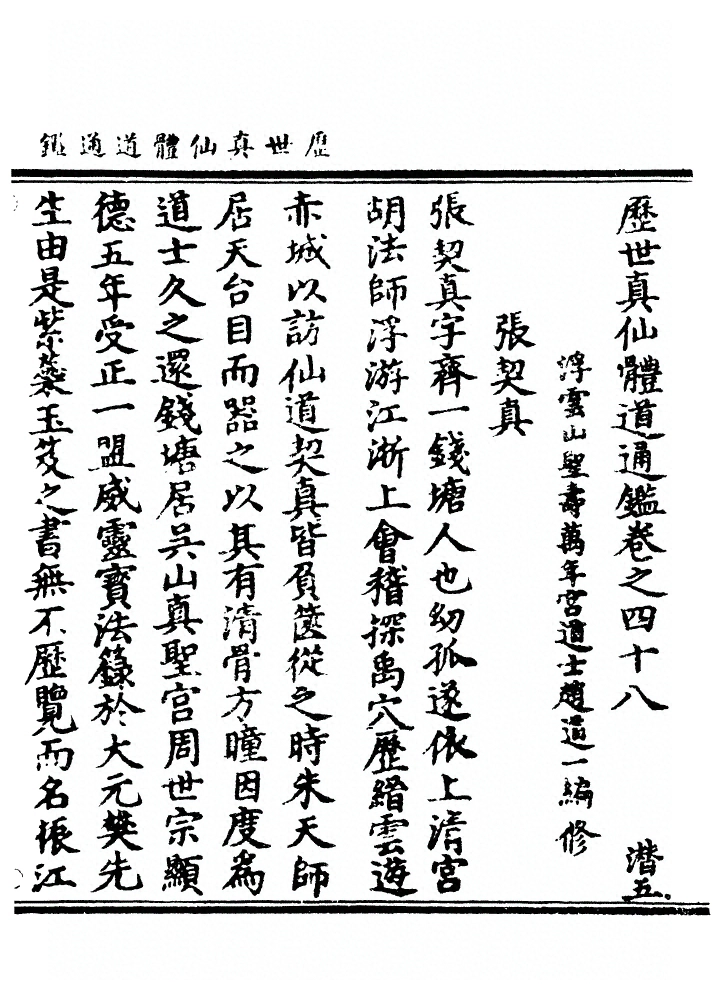 歷世真仙體道通鑑
歷世真仙體道通鑑卷之四十八
潜五
浮雲山聖壽萬年宮道士趙道一編修
張契真
張契真字齊一錢塘人也幼孤遂依上清宮
胡法師浮游江浙上會稽探禹穴歷縉雲遊
赤城以訪仙道契真皆負篋從之時朱天師
居天台目而器之以其有清骨方瞳因度為
道士久之還錢塘居吳山真聖宮周世宗顯
德五年受正一盟威靈寶法籙於大元樊先
生由是紫蘂玉笈之書無不歷覽而名振江